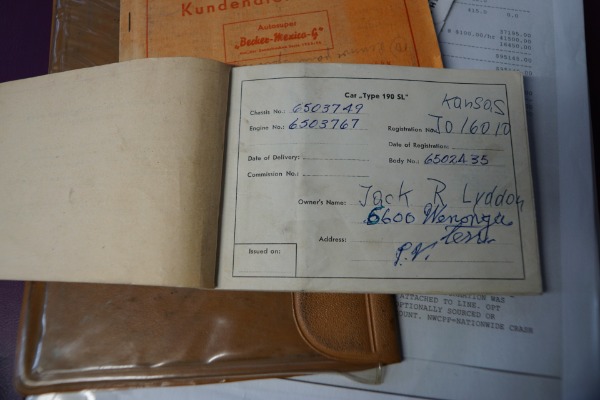 Kundendien
Autosuper
„Becker-Mexico-G"
615.0 0.0
37299.00
41500.00
18450.00
Car „Type 190 SL"
Kansas
Chassis No.: 6503749
Engine No.: 6503767
Registration No. JO16010
Date of Registration:
Date of Delivery:
Body No.: 6502435
Commission No.:
Owner's Name: Jack R Lyddon
6600 Wenonga
Address: Terr.
P.V.
Issued on:
WAS
ATTACHED TO LINE. OPT
OPTIONALLY SOURCED OR
OUNT. NWCPP=NATIONWIDE CRASH